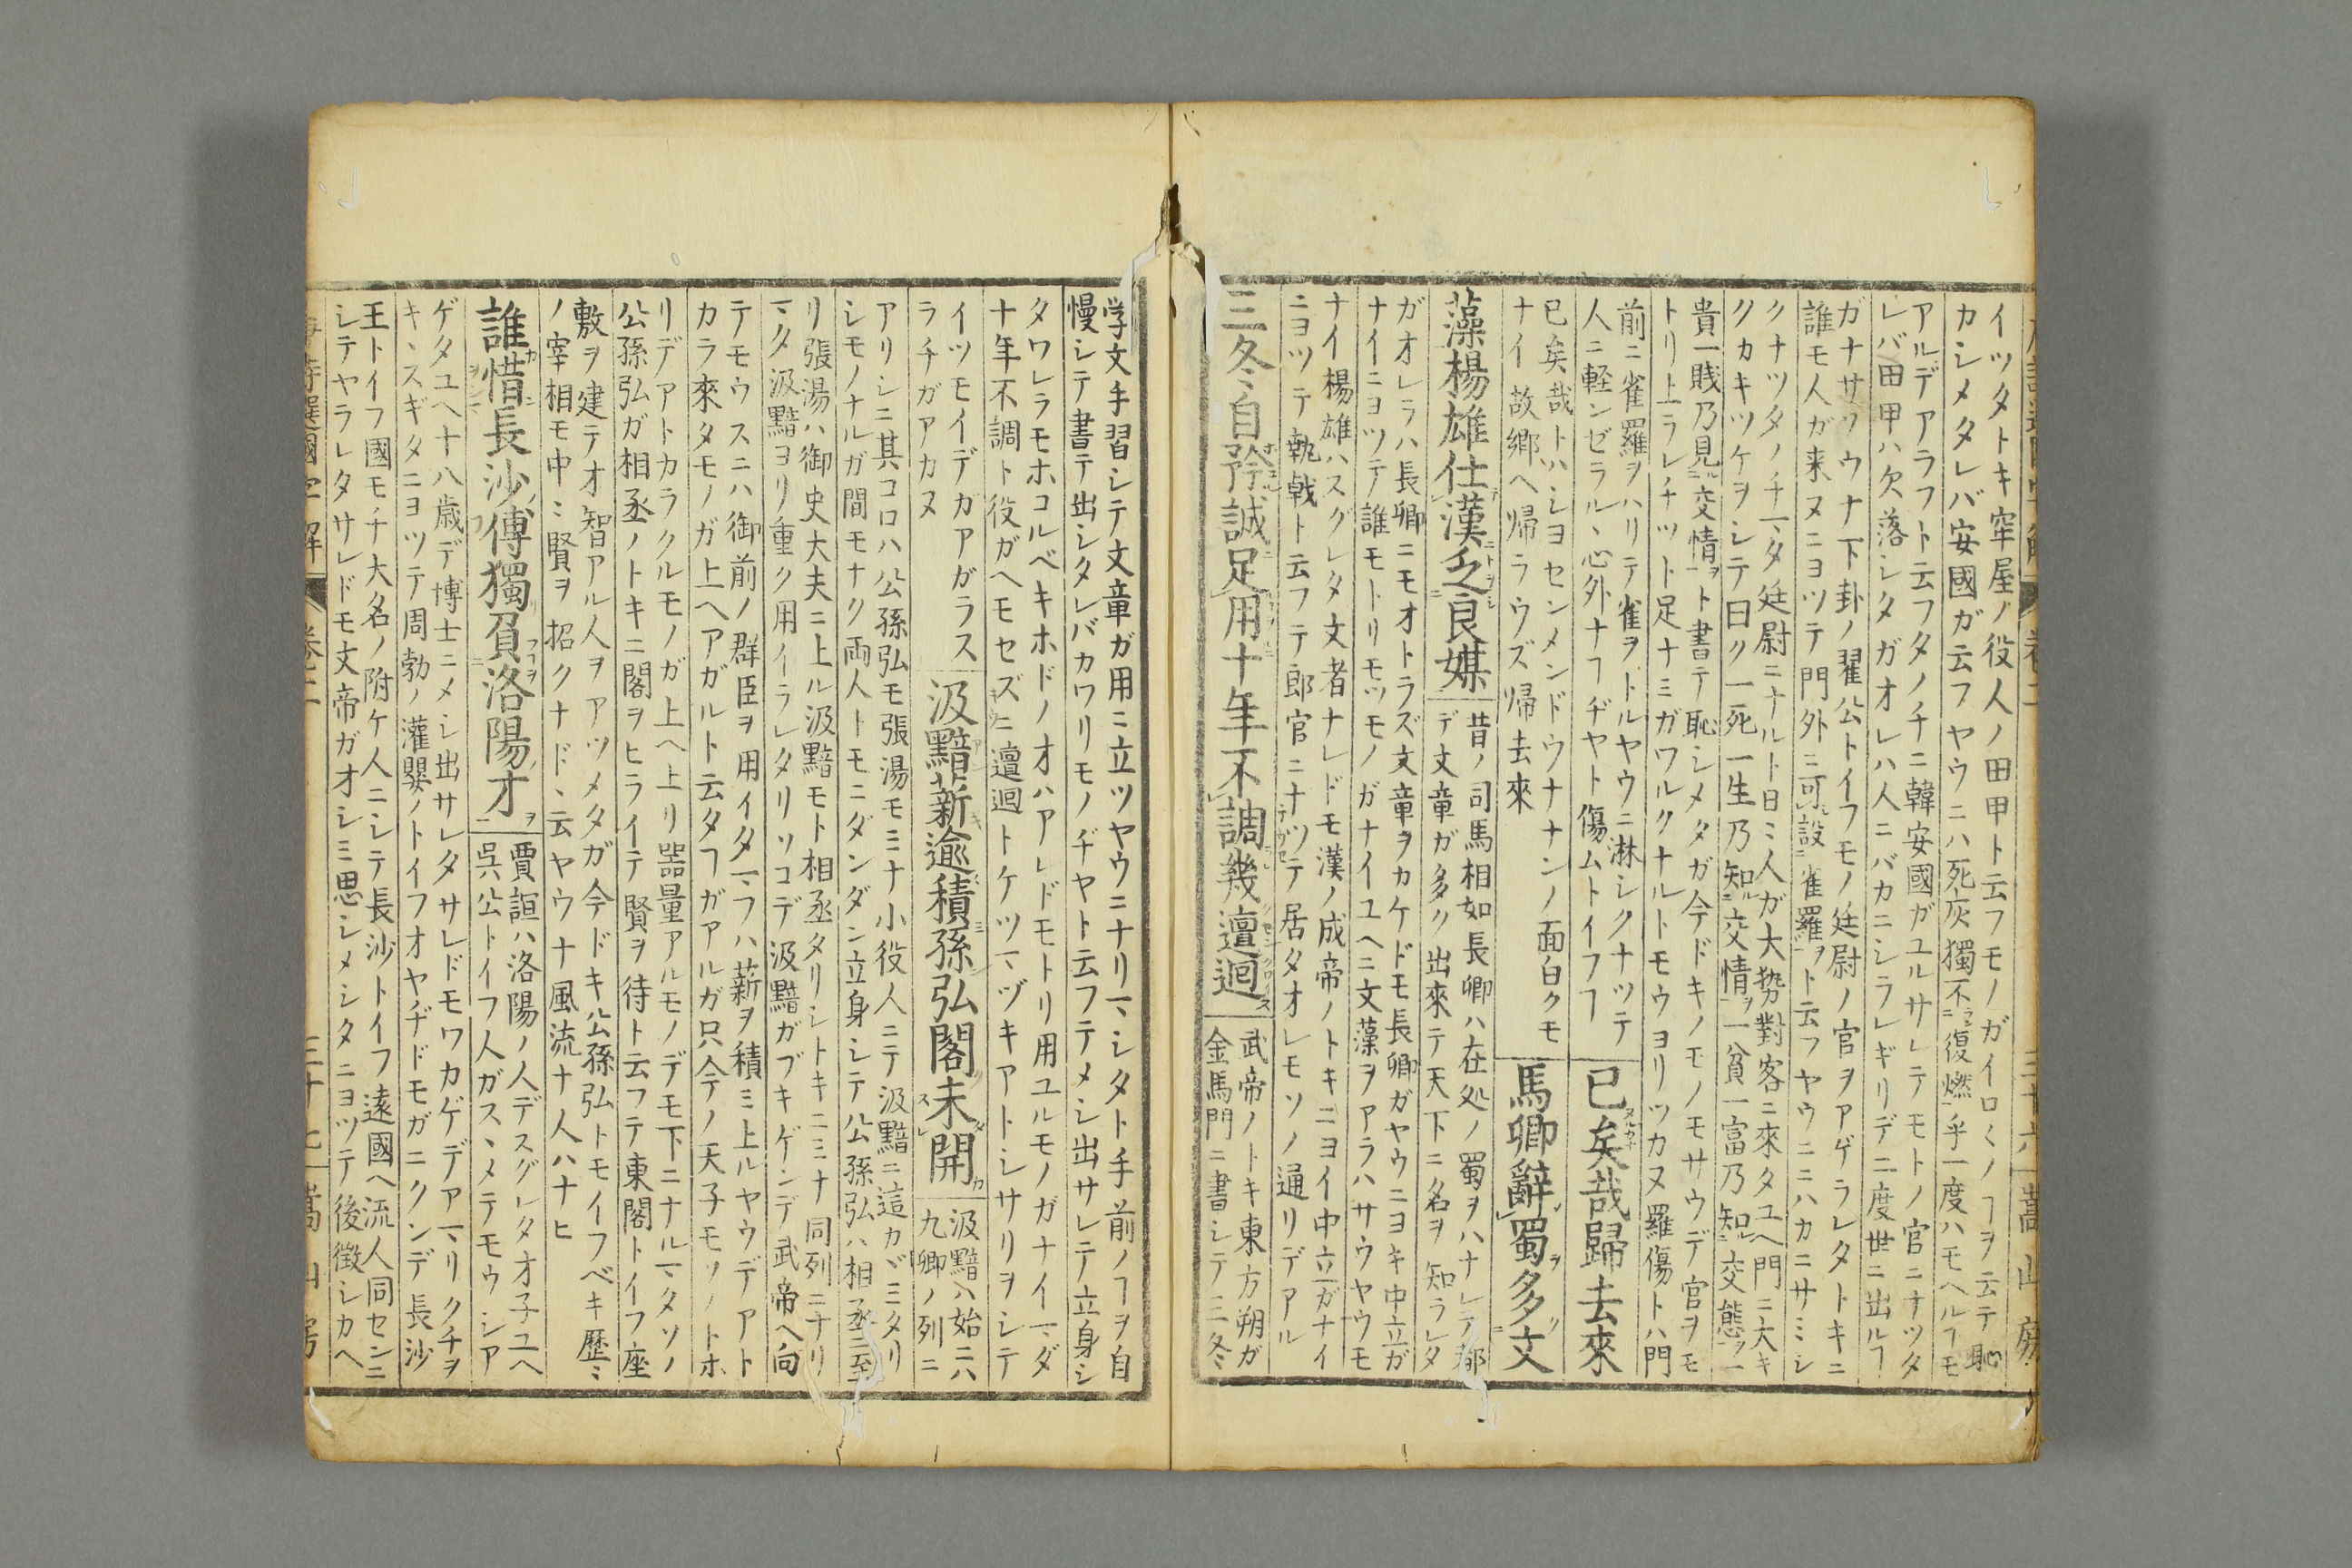 イツタトキ窂屋ノ役人ノ田甲ト云フモノガイロ〱ノヿヲ云テ恥
カシメタレバ安國ガ云フヤウニハ死灰獨不復燃乎一度ハモヘルヿモ
アルデアラフト云フタノチニ韓安國ガユルサレテモトノ官ニナツタ
レバ田甲ハ欠落シタガオレハ人ニバカニシラレギリデ二度世ニ出ルヿ
ガナサソウナ下卦ノ翟公トイフモノ廷尉ノ官ヲアゲラレタトキニ
誰モ人ガ来ヌニヨツテ門外ニ可設雀羅ヲト云フヤウニニハカニサミシ
クナツタノチマタ廷尉ニナルト日ミ人ガ大勢對客ニ來タユヘ門ニ大キ
クカキツケヲシテ曰ク一死一生乃知交情ヲ一貧一富乃知交態ヲ一
貴一賎乃見交情ヲト書テ恥シメタガ今ドキノモノモサウデ官ヲモ
トリ上ラレチツト足ナミガワルクナルトモウヨリツカヌ羅傷トハ門
前ニ雀羅ヲハリテ雀ヲトルヤウニ淋シクナツテ
人ニ軽ンゼラルヽ心外ナヿヂヤト傷ムトイフヿ
已矣哉歸去來
已矣哉トハシヨセンメンドウナナンノ面白クモ
ナイ故郷ヘ帰ラウズ帰去來
馬卿辭蜀多文
藻楊雄仕漢乏良媒
昔ノ司馬相如長卿ハ在処ノ蜀ヲハナレテ都
デ文章ガ多ク出來テ天下ニ名ヲ知ラレタ
ガオレラハ長卿ニモオトラズ文章ヲカケドモ長卿ガヤウニヨキ中立ガ
ナイニヨツテ誰モトリモツモノガナイユヘニ文藻ヲアラハサウヤウモ
ナイ楊雄ハスグレタ文者ナレドモ漢ノ成帝ノトキニヨイ中立ガナイ
ニヨツテ執戟ト云フテ郎官ニナツテ居タオレモソノ通リデアル
三冬自矜誠足用十年不調幾邅迴
武帝ノトキ東方朔ガ
金馬門ニ書シテ三冬
学文手習シテ文章ガ用ニ立ツヤウニナリマシタト手前ノヿヲ自
慢シテ書テ出シタレバカワリモノヂヤト云フテメシ出サレテ立身シ
タワレラモホコルベキホドノオハアレドモトリ用ユルモノガナイマダ
十年不調ト役ガヘモセズニ邅迴トケツマヅキアトシサリヲシテ
イツモイデガアガラス
ラチガアカヌ
汲黯薪逾積孫弘閣未開
汲黯ハ始ニハ
九卿ノ列ニ
アリシニ其コロハ公孫弘モ張湯モミナ小役人ニテ汲黯ニ這カヾミタリ
シモノナルガ間モナク両人トモニダンダン立身シテ公孫弘ハ相丞ニ至
リ張湯ハ御史大夫ニ上ル汲黯モト相丞タリシトキニミナ同列ニナリ
マタ汲黯ヨリ重ク用イラレタリソコデ汲黯ガブキゲンデ武帝ヘ向
テモウスニハ御前ノ群臣ヲ用イタマフハ薪ヲ積ミ上ルヤウデアト
カラ來タモノガ上ヘアガルト云タヿガアルガ只今ノ天子モソノトホ
リデアトカラクルモノガ上ヘ上リ器量アルモノデモ下ニナルマタソノ
公孫弘ガ相丞ノトキニ閣ヲヒライテ賢ヲ待ト云フテ東閣トイフ座
敷ヲ建テオ智アル人ヲアツメタガ今ドキ公孫弘トモイフベキ歷ミ
ノ宰相モ中ミ賢ヲ招クナドヽ云ヤウナ風流ナ人ハナヒ
誰惜長沙傅獨負洛陽才
賈誼ハ洛陽ノ人デスグレタオ子ユヘ
呉公トイフ人ガスヽメテモウシア
ゲタユヘ十八歳デ博士ニメシ出サレタサレドモワカゲデアマリクチヲ
キヽスギタニヨツテ周勃ノ灌嬰ノトイフオヤヂドモガニクンデ長沙
王トイフ國モチ大名ノ附ケ人ニシテ長沙トイフ遠國ヘ流人同センニ
シテヤラレタサレドモ文帝ガオシミ思シメシタニヨツテ後徴シカヘ